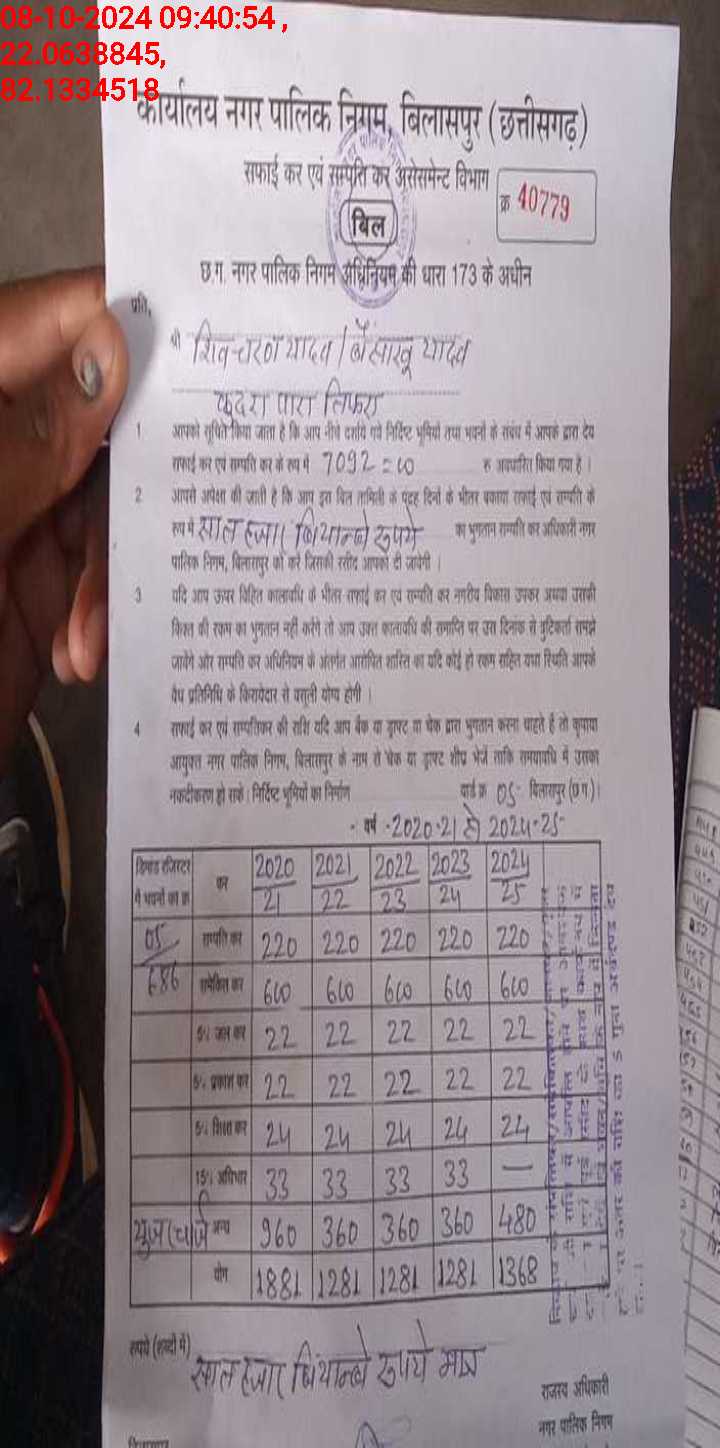 08-10-2024 09:40:54 ,
22.0638845,
82.1334518
कार्यालय नगर पालिक निगम, बिलासपुर (छत्तीसगढ़)
सफाई कर एवं सम्पति कर असेसमेन्ट विभाग
क्र 40779
बिल
छ.ग. नगर पालिक निगम अधिनियम की धारा 173 के अधीन
प्रति,
श्री शिवचरण यादव / बैसाखू यादव
कुदरा पारा तिफरा
1 आपको सूचित किया जाता है कि आप नीचे दर्शाये गये निर्दिष्ट भूमियों तथा भवनों के संबंध में आपके द्वारा देय
सफाई कर एवं सम्पति कर के रूप में 7092=00 रु अवधारित किया गया है ।
2 आपसे अपेक्षा की जाती है कि आप इस बिल तामिली के पंद्रह दिनों के भीतर बकाया सफाई एवं सम्पति के
रूप में सात हजार बियान्बे रुपये का भुगतान सम्पति कर अधिकारी नगर
पालिक निगम, बिलासपुर को करे जिसकी रसीद आपको दी जायेगी ।
3 यदि आप ऊपर विहित कालावधि के भीतर सफाई कर एवं सम्पति कर नगरीय विकास उपकर अथवा उसकी
किश्त की रकम का भुगतान नहीं करेंगे तो आप उक्त कालावधि की समाप्ति पर उस दिनांक से त्रुटिकर्ता समझे
जायेंगे और सम्पति कर अधिनियम के अंतर्गत आरोपित शास्ति का यदि कोई हो रकम सहित यथा स्थिति आपके
वैध प्रतिनिधि के किरायेदार से वसूली योग्य होगी ।
4 सफाई कर एवं सम्पतिकर की राशि यदि आप बैंक या ड्राफ्ट या चेक द्वारा भुगतान करना चाहते है तो कृपया
आयुक्त नगर पालिक निगम, बिलासपुर के नाम से चेक या ड्राफ्ट शीघ्र भेजें ताकि समयावधि में उसका
नकदीकरण हो सके। निर्दिष्ट भूमियों का निर्माण वार्ड क्र 05 बिलासपुर (छ.ग.)।
वर्ष -2020-21 से 2024-25
डिमांड रजिस्टर में भवनों का क्र कर 2020/21 2021/22 2022/23 2023/24 2024/25
05/686 सम्पति कर 220 220 220 220 220
समेकित कर 600 600 600 600 600
5% जल कर 22 22 22 22 22
5% प्रकाश कर 22 22 22 22 22
5% शिक्षा कर 24 24 24 24 24
15% अधिभार 33 33 33 33 —
यूजर चार्ज अन्य 960 360 360 360 480
योग 1881 1281 1281 1281 1368
रुपये (शब्दों में) सात हजार बियान्बे रुपये मात्र
राजस्व अधिकारी
नगर पालिक निगम